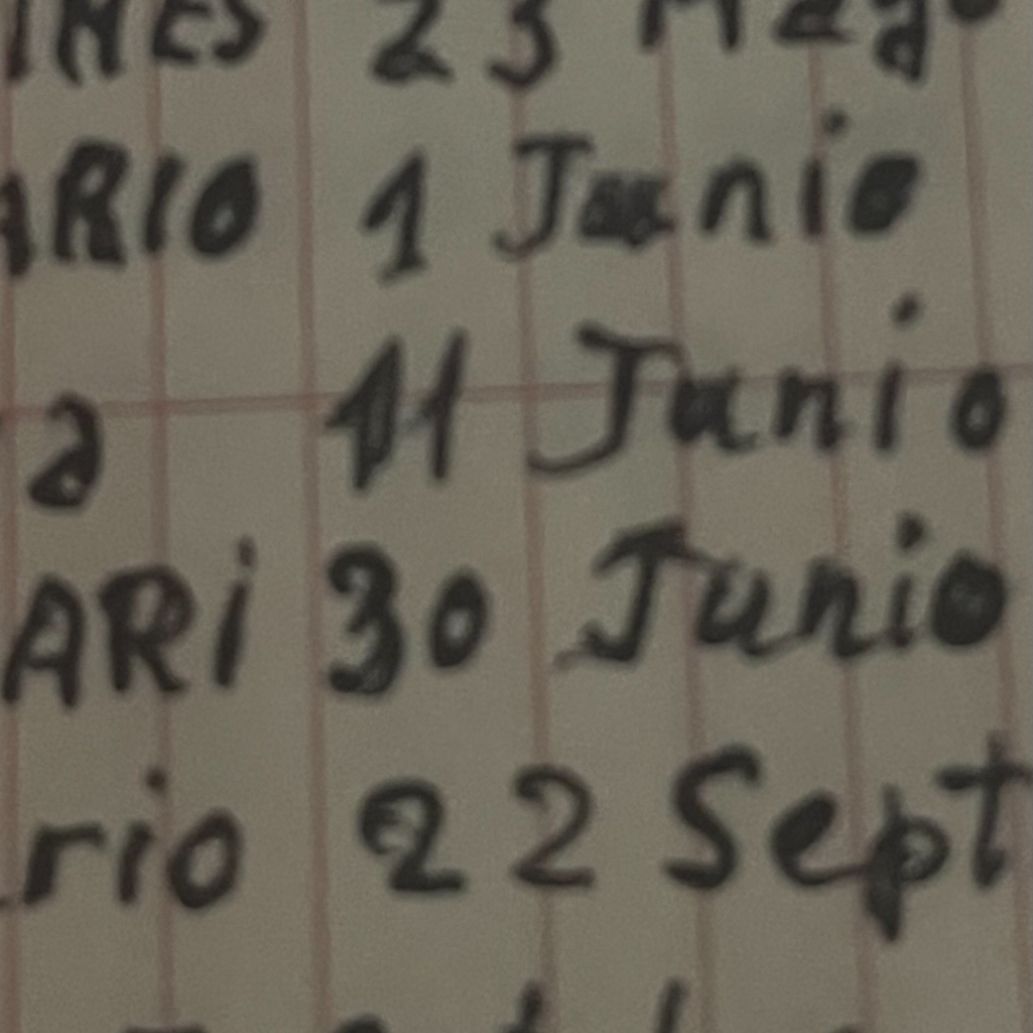 INES 23 Mayo
ARIO 1 Junio
a 11 Junio
ARi 30 Junio
rio 22 Sept